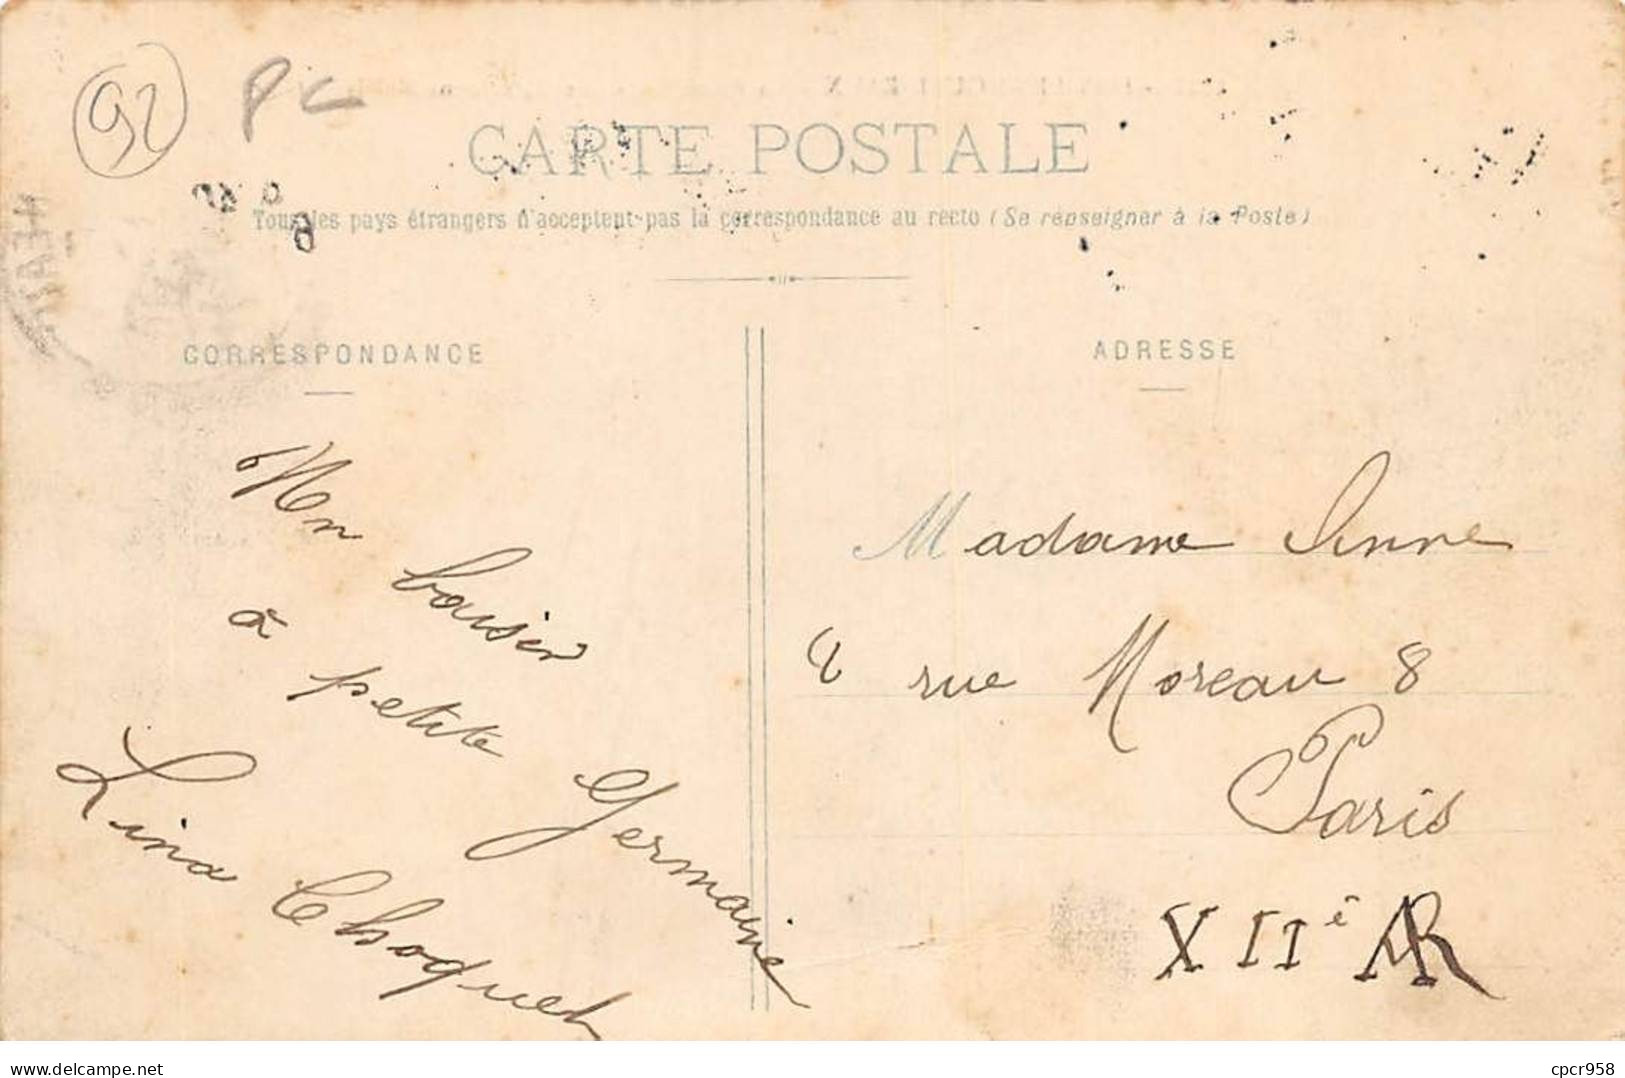 92
PC
CARTE POSTALE
Tous les pays étrangers n'acceptent pas la correspondance au recto (Se renseigner à la Poste)
CORRESPONDANCE
Un baiser
à petite Germaine
Lina Choquet
ADRESSE
Madame Anne
8 rue Moreau 8
Paris
XIIè AR
delcampe.net
cpcr958